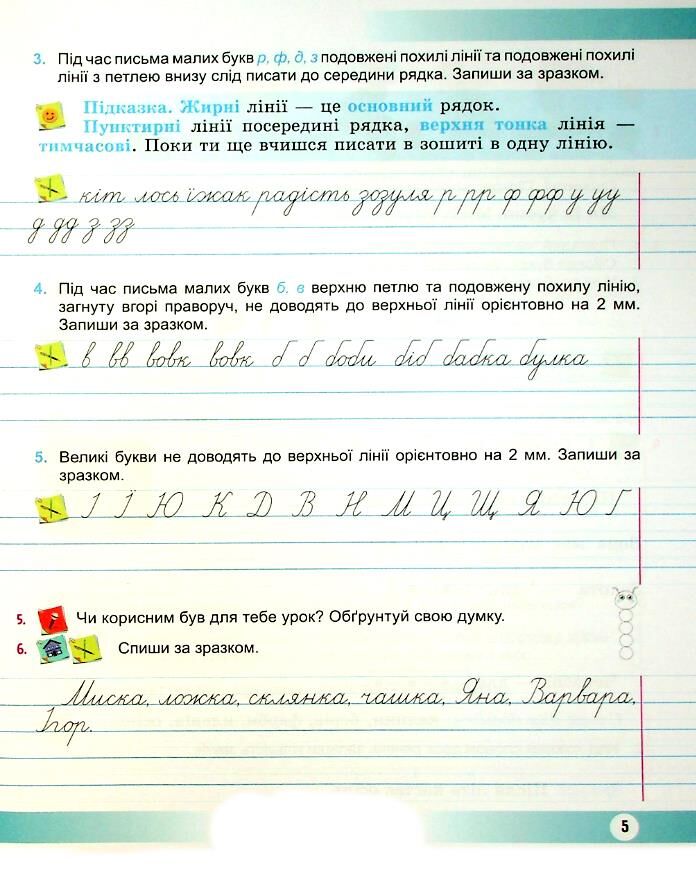 3. Під час письма малих букв р, ф, д, з подовжені похилі лінії та подовжені похилі
лінії з петлею внизу слід писати до середини рядка. Запиши за зразком.
Підказка. Жирні лінії — це основний рядок.
Пунктирні лінії посередині рядка, верхня тонка лінія —
тимчасові. Поки ти ще вчишся писати в зошиті в одну лінію.
кіт лось їжак радість зозуля р рр ф фф у уу
д дд з зз
4. Під час письма малих букв б. в верхню петлю та подовжену похилу лінію,
загнуту вгорі праворуч, не доводять до верхньої лінії орієнтовно на 2 мм.
Запиши за зразком.
в вв вовк вовк б б боби біб бабка булка
5. Великі букви не доводять до верхньої лінії орієнтовно на 2 мм. Запиши за
зразком.
І Ї Ю К Д В Н М Ц Щ Я Ю Г
5. Чи корисним був для тебе урок? Обґрунтуй свою думку.
6. Спиши за зразком.
Миска, ложка, склянка, чашка, Яна, Варвара,
Ігор.
5